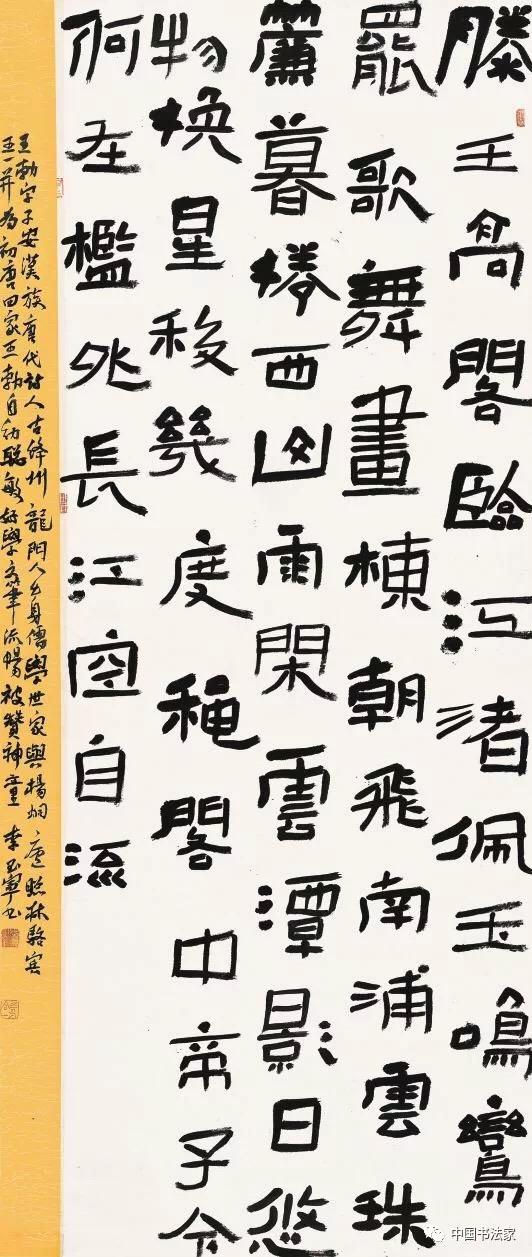 滕王高閣臨江渚佩玉鳴鸞
罷歌舞畫棟朝飛南浦雲珠
簾暮捲西山雨閑雲潭影日悠
物換星移幾度穐閣中帝子今
何在檻外長江空自流
王勃字子安漢族唐代詩人古絳州龍門人出身儒學世家與楊炯盧照林駱賓
王一并為初唐四家王勃自幼聰敏好學文筆流暢被贊神童 李玉寧书
中国书法家